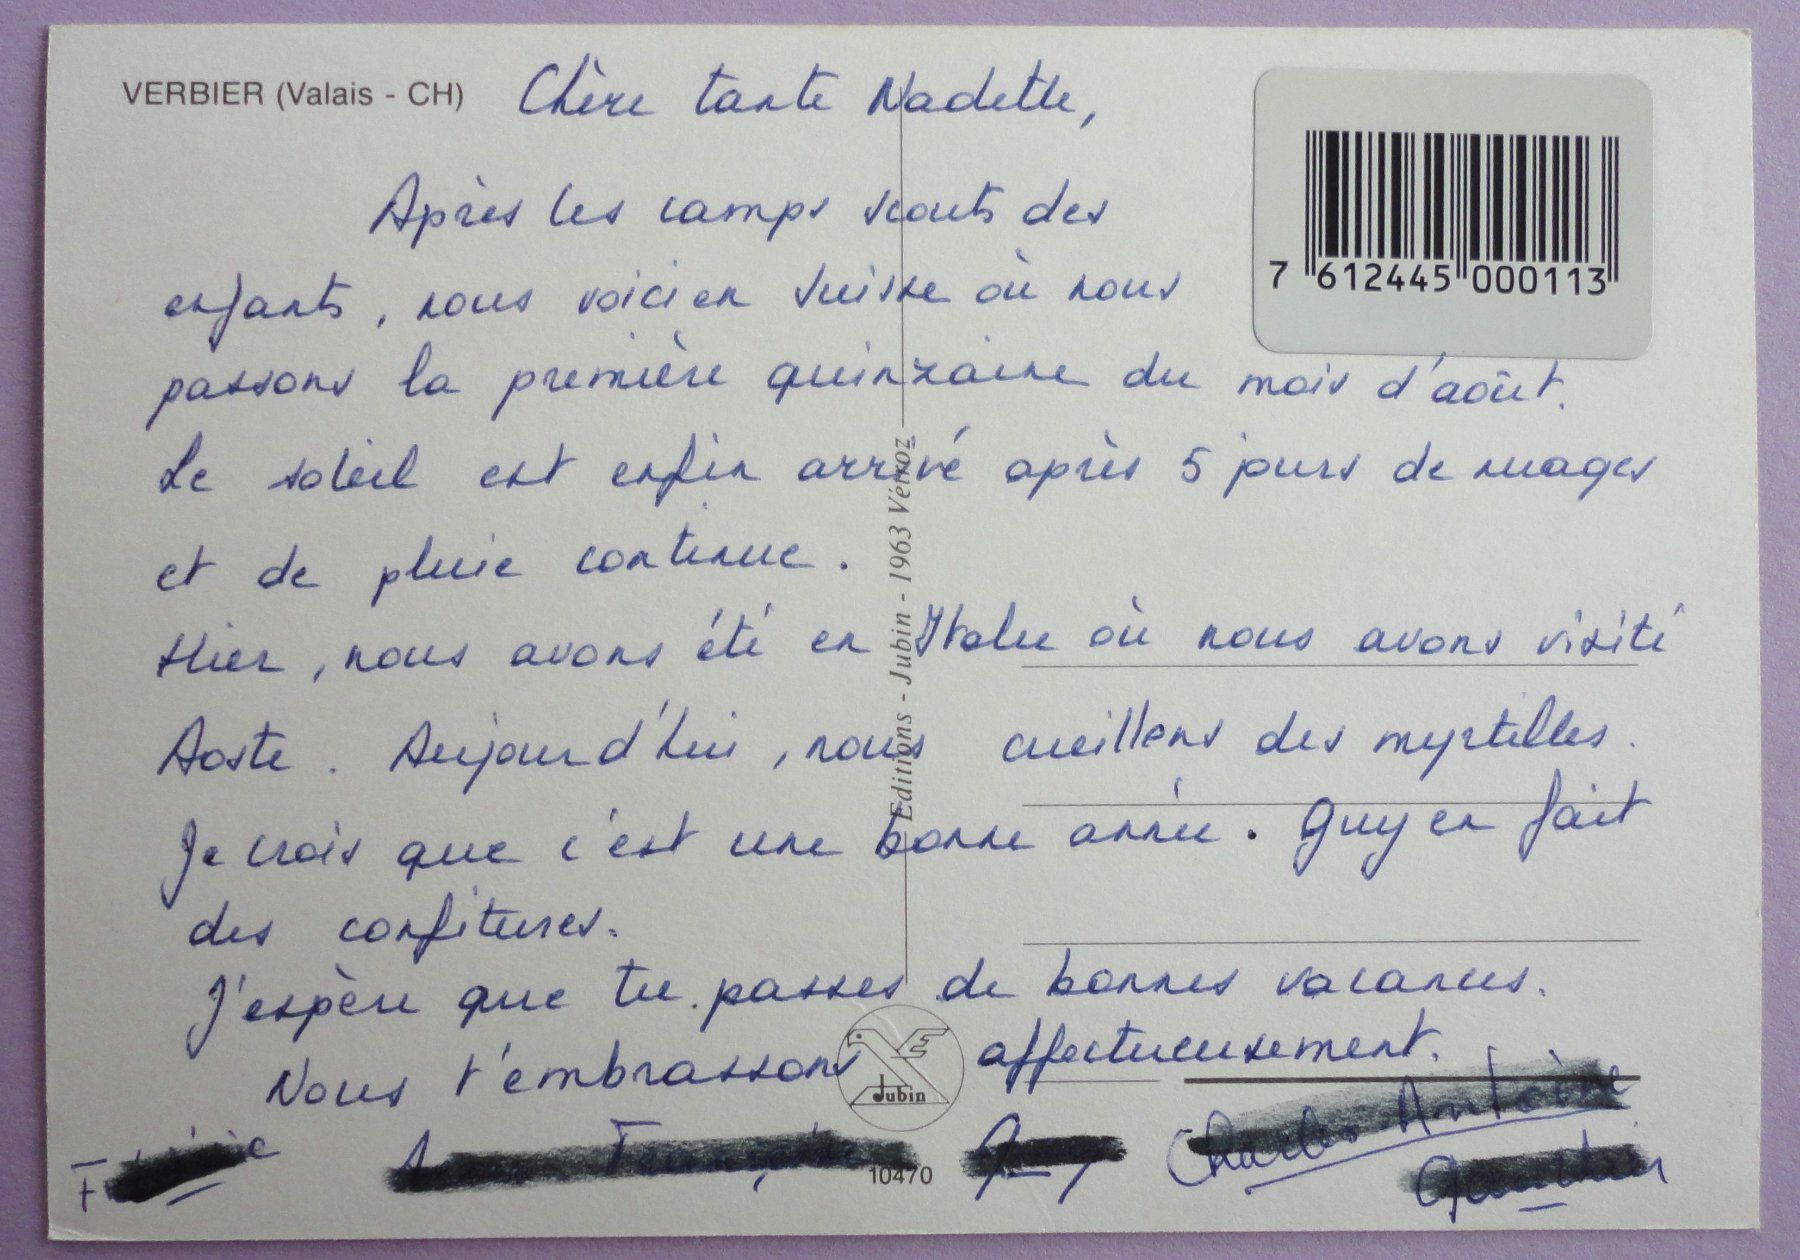 VERBIER (Valais - CH)
Chère tante Nadette,
Après les camps scouts des
enfants, nous voici en Suisse où nous
passons la première quinzaine du mois d'août.
Le soleil est enfin arrivé après 5 jours de nuages
et de pluie continue.
Hier, nous avons été en Italie où nous avons visité
Aoste. Aujourd'hui, nous cueillons des myrtilles.
Je crois que c'est une bonne année. Guy en fait
des confitures.
J'espère que tu passes de bonnes vacances.
Nous t'embrassons affectueusement.
7 612445 000113
Editions - Jubin - 1963 Vétroz
Jubin
10470